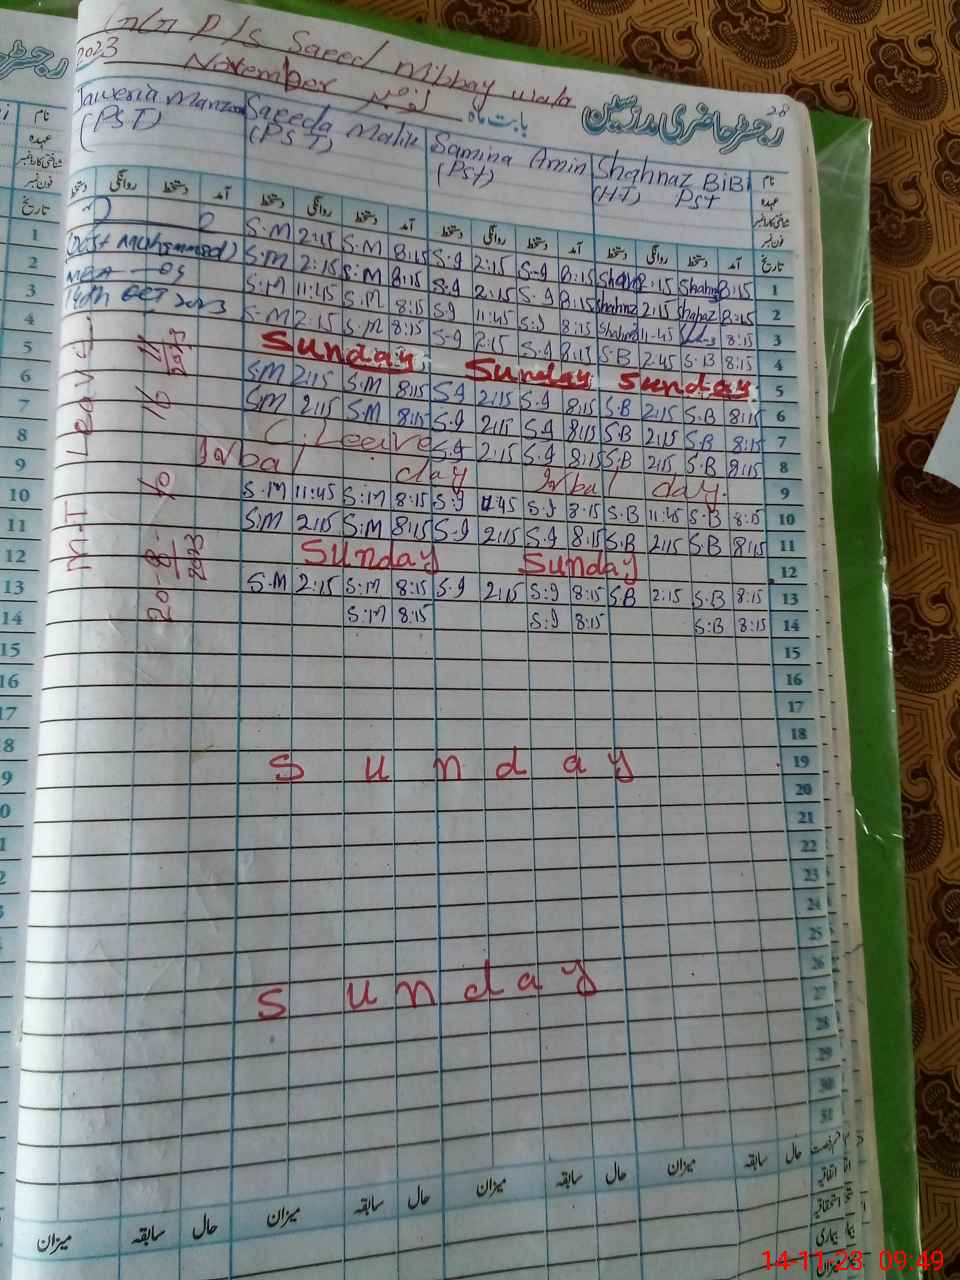 P/S Saeed Nibbay wala
2023 November نومبر
بابت ماہ رجسٹر حاضری مدرسین 28
Jaweria Manzoor Saeeda Malik Samina Amin Shahnaz BiBi نام
(PST) (PST) (PST) (HT) PST عہدہ
شناختی کارڈ نمبر
فون نمبر
دستخط روانگی دستخط آمد دستخط روانگی دستخط آمد دستخط روانگی دستخط آمد دستخط روانگی دستخط آمد تاریخ
S.M 2:45 S.M 8:15 S.J 2:15 S.J 8:15 Shahnaz 2:15 Shahnaz 8:15 1
S.M 2:15 S.M 8:15 S.J 2:15 S.J 8:15 Shahnaz 2:15 Shahnaz 8:15 2
14th OCT 2023 S.M 11:45 S.M 8:15 S.J 11:45 S.J 8:15 Shahnaz 11:45 8:15 3
S.M 2:15 S.M 8:15 S.J 2:15 S.J 8:15 S.B 2:45 S.B 8:15 4
Sunday Sunday Sunday 5
S.M 2:15 S.M 8:15 S.J 2:15 S.J 8:15 S.B 2:15 S.B 8:15 6
S.M 2:15 S.M 8:15 S.J 2:15 S.J 8:15 S.B 2:15 S.B 8:15 7
C.Leave S.J 2:15 S.J 8:15 S.B 2:15 S.B 8:15 8
Iqbal day Iqbal day 9
S.M 11:45 S.M 8:15 S.J 11:45 S.J 8:15 S.B 11:45 S.B 8:15 10
S.M 2:15 S.M 8:15 S.J 2:15 S.J 8:15 S.B 2:15 S.B 8:15 11
Sunday Sunday 12
S.M 2:15 S.M 8:15 S.J 2:15 S.J 8:15 S.B 2:15 S.B 8:15 13
S.M 8:15 S.J 8:15 S.B 8:15 14
M.T Leave
20-8-2023
15
16
17
18
Sunday 19
20
21
22
23
24
25
26
Sunday 27
28
29
30
31
میزان سابقہ حال میزان سابقہ حال میزان سابقہ حال میزان سابقہ حال
اتفاقیہ
استحقاقیہ
بیماری
میزان
14-11-23 09:49